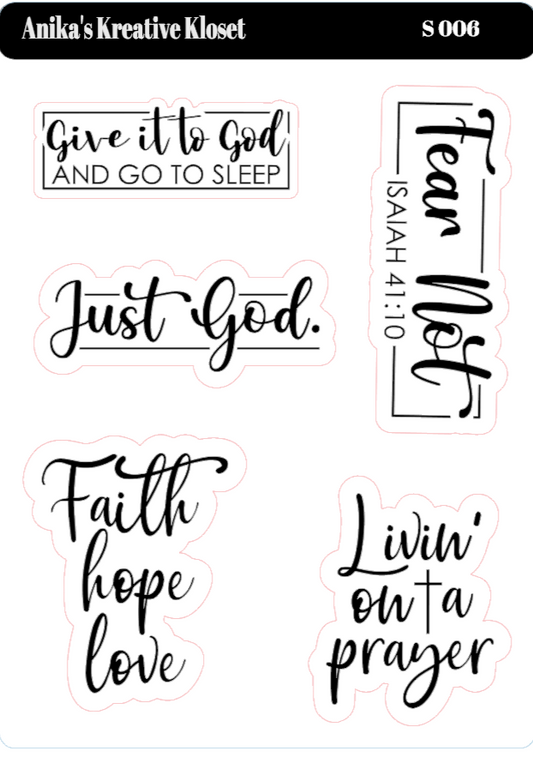 Anika's Kreative Kloset
S 006
Give it to God
AND GO TO SLEEP
Fear Not
ISAIAH 41:10
Just God.
Faith
hope
love
Livin'
on a
prayer